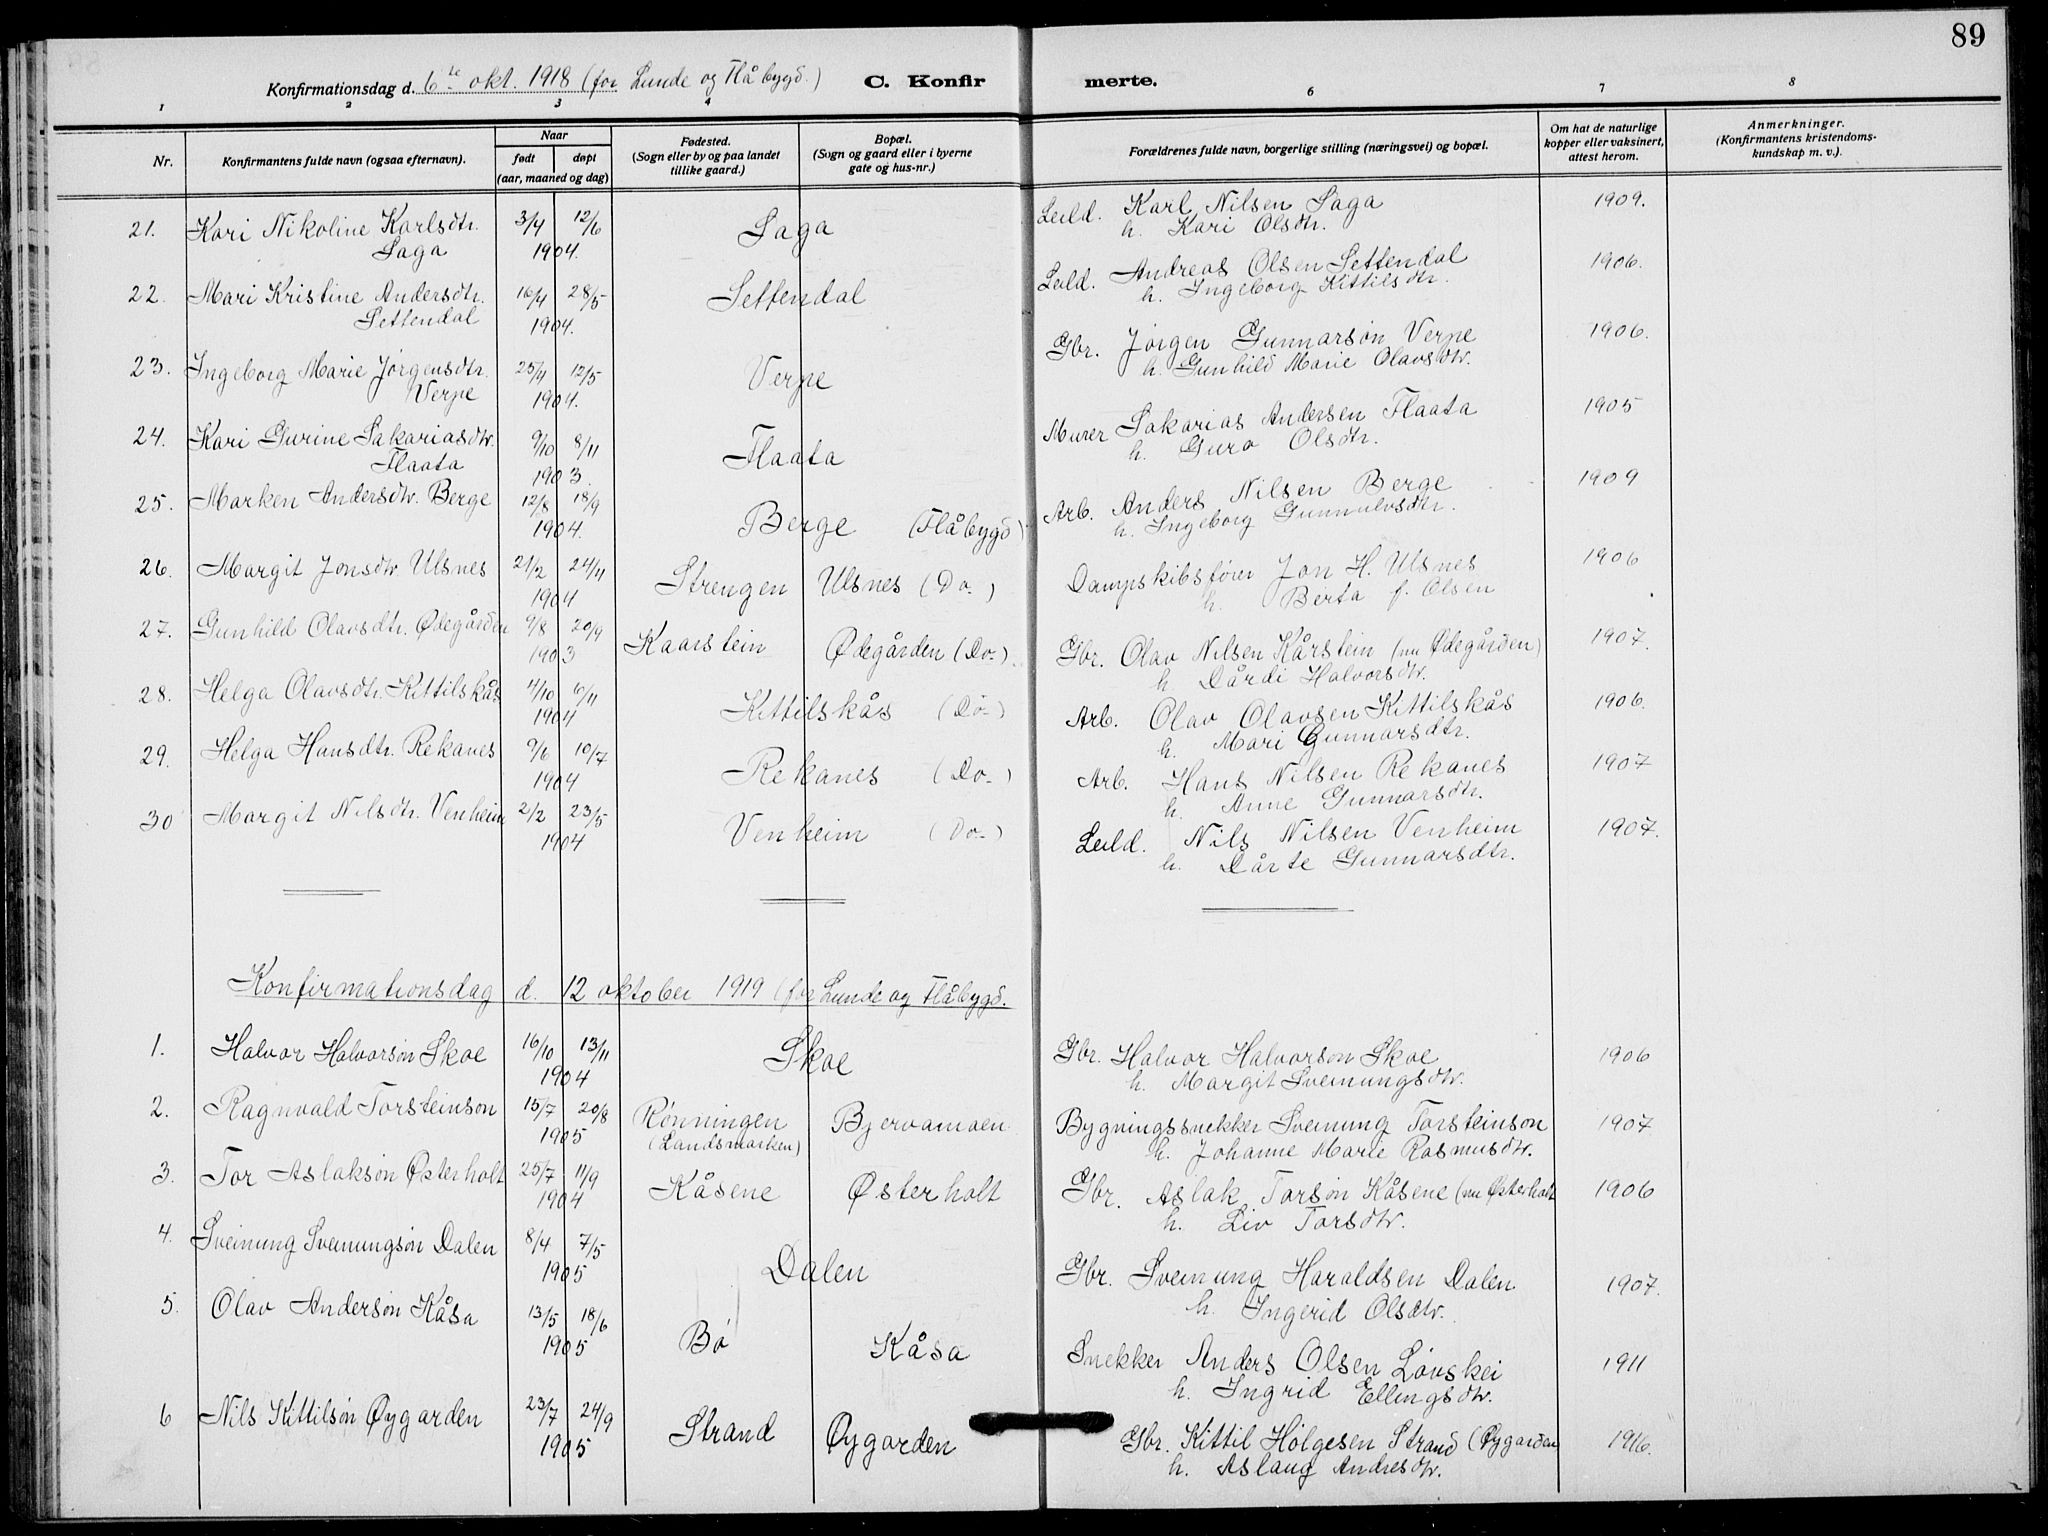 89
Konfirmationsdag d. 6te okt. 1918 (for Lunde og Flåbygd.) C. Konfirmerte.
1 2 3 4 6 7 8
Nr. Konfirmantens fulde navn (ogsaa efternavn). Naar født døpt (aar, maaned og dag) Fødested. (Sogn eller by og paa landet tillike gaard.) Bopæl. (Sogn og gaard eller i byerne gate og hus-nr.) Forældrenes fulde navn, borgerlige stilling (næringsvei) og bopæl. Om hat de naturlige kopper eller vaksinert, attest herom. Anmerkninger. (Konfirmantens kristendoms-kundskap m. v.).
21. Kari Nikoline Karlsdtr. 3/4 12/6 Saga Leild. Karl Nilsen Saga 1909.
Saga 1904. h. Kari Olsdtr.
22. Mari Kristine Andersdtr. 16/4 28/5 Settendal Leild. Andreas Olsen Settendal 1906.
Settendal 1904. h. Ingeborg Kittilsdtr.
23. Ingeborg Marie Jørgensdtr. 25/4 12/5 Verpe Gbr. Jørgen Gunnarson Verpe 1906.
Verpe 1904. h. Gunhild Marie Olavsdtr.
24. Kari Gurine Sakariasdtr. 9/10 8/11 Flaata Murer Sakarias Andersen Flaata 1905
Flaata 1903. h. Guro Olsdtr.
25. Marken Andersdtr. Berge 12/8 18/9 Berge (Flåbygd) Arb. Anders Nilsen Berge 1909
1904. h. Ingeborg Gunnulvsdtr.
26. Margit Jonsdtr. Ulsnes 21/2 24/4 Strengen Ulsnes (Do-) Dampskibsfører Jon H. Ulsnes 1906
1904 h. Berta f. Olsen
27. Gunhild Olavsdtr. Ødegården 9/8 20/9 Kaarstein Ødegården (Do-). Gbr. Olav Nilsen Kårstein (nu Ødegården) 1907.
1903 h Dårdi Halvorsdtr.
28. Helga Olavsdtr. Kittilskås 4/10 6/11 Kittilskås (Do-) Arb. Olav Olavsen Kittilskås 1906.
1904 h. Mari Gunnarsdtr.
29. Helga Hansdtr. Rekanes 9/6 10/7 Rekanes (Do-) Arb. Hans Nilsen Rekanes 1907
1904 h. Anne Gunnarsdtr.
30 Margit Nilsdtr. Venheim 2/2 23/5 Venheim (Do-) Leild. Nils Nilsen Venheim 1907.
1904 h. Dårte Gunnarsdtr.
Konfirmationsdag d. 12 oktober 1919 (for Lunde og Flåbygd.
1. Halvor Halvorson Skoe 16/10 13/11 Skoe Gbr. Halvor Halvorson Skoe 1906
1904 h. Margit Sveinungsdtr.
2. Ragnvald Torsteinson 15/7 20/8 Rønningen Bjervamoen Bygningssnekker Sveinung Torsteinson 1907
1905 (Landsmarken) h. Johanne Marie Rasmusdtr.
3. Tor Aslakson Østerholt 25/7 11/9 Kåsene Østerholt Gbr. Aslak Torson Kåsene (nu Østerholt 1906
1904 h. Liv Torsdtr.
4. Sveinung Sveinungson Dalen 8/4 7/5 Dalen Gbr. Sveinung Haraldsen Dalen 1907.
1905 h. Ingerid Olsdtr.
5. Olav Anderson Kåsa 13/5 18/6 Bø Kåsa Snekker Anders Olsen Løvskei 1911
1905 h. Ingrid Ellingsdtr.
6 Nils Kittilson Øygarden 23/7 24/9 Strand Øygarden Gbr. Kittil Holgesen Strand (Øygarden 1916.
1905 h. Aslaug Andresdtr.